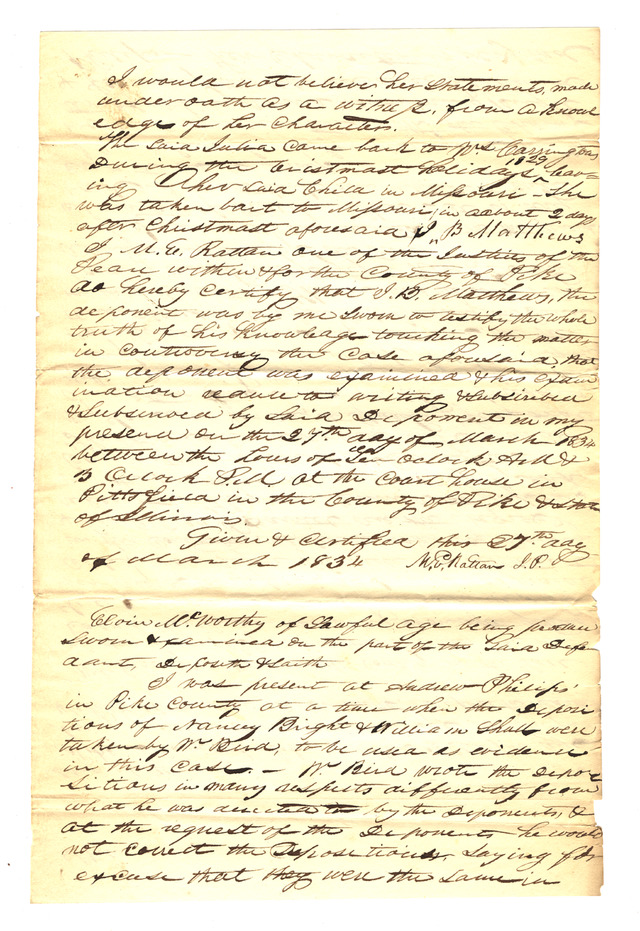 I would not believe her statements, made
under oath as a witness, from a knowl
edge of her character.
The said Julia came back to Mrs Carringtons
During the Cristmast Holidays, 1829 leav-
ing her said Child in Missouri - She
was taken bact to Missouri, in about 2 days
after Christmast aforesaid J, B Matthews
I M. E. Rattan one of the Justices of the
Peace within & for the County of Pike
do hereby Certify that J. B. Mathews, the
deponent was by me sworn to testify the whole
truth of his knowledge touching the matter
in controversy the Case aforesaid, that
the deponent was examined & his exam
ination reduced to writing & subscribed
& Subscribed by said Deponent in my
presence on the 27th day of March 1834
between the hours of Ten Oclock AM &
3 Oclock PM at the Court house in
Pittsfield in the County of Pike & State
of Illinois.
Given & Certified this 27th day
of March 1834 M. E. Rattan J. P.
Elvin McWorthy of Lawful age being
Sworn & examined on the part of the said Defe
dant, Deposeth & Saith
I was present at Andrew Philips'
in Pike County at a time when the Deposi
tions of Nancy Bright & William Shall were
taken by Wm Bird, to be used as evidence
in this case. - Wm Bird wrote the Depo
sitions in many respects differently from
what he was directed to by the Deponents, &
at the request of the Deponents he would
not correct the Depositions, saying for
excuse that they were the same in